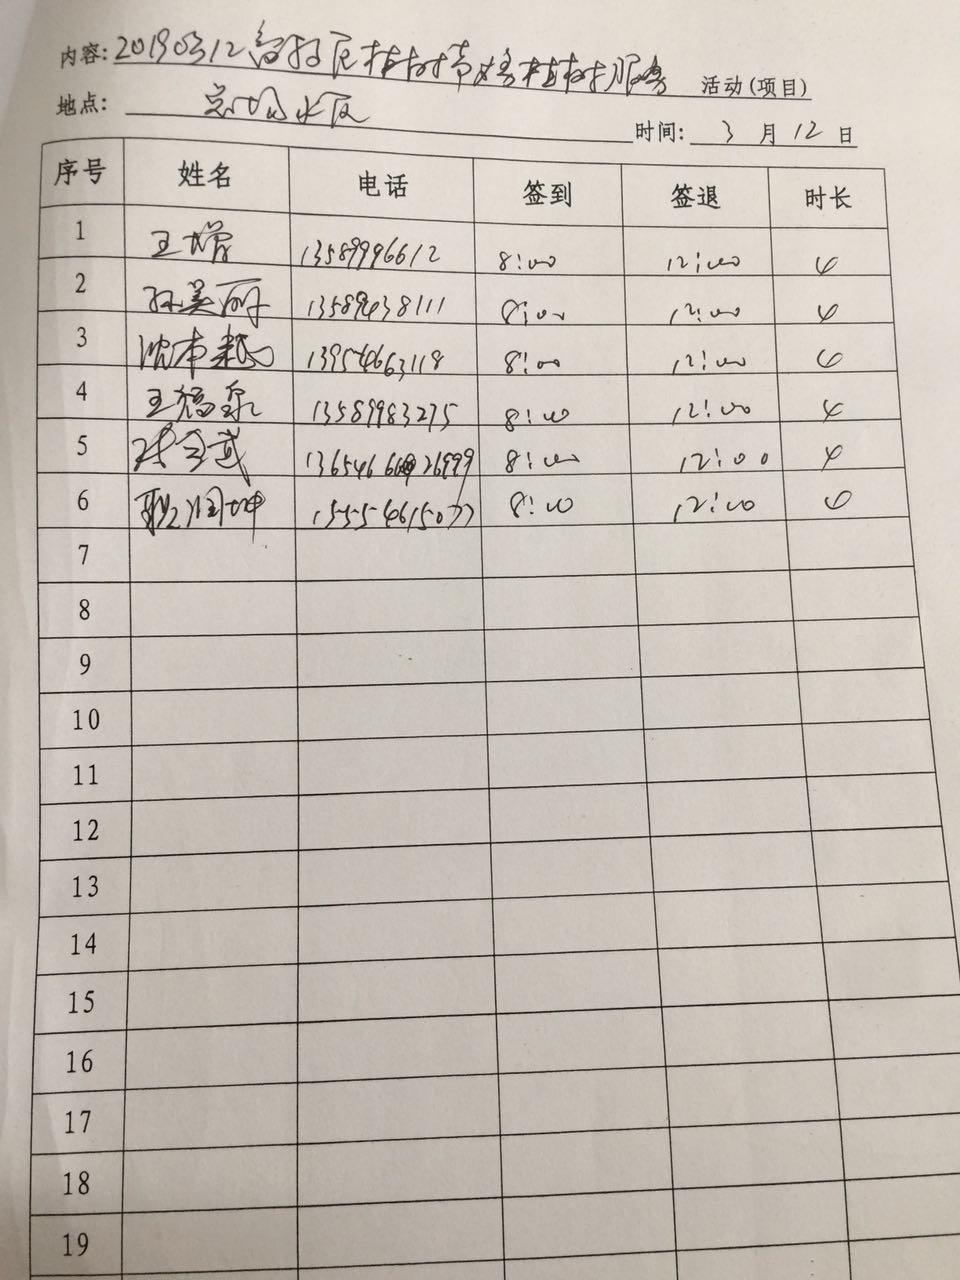 内容: 20190312 植树节 植树服务 活动(项目)
地点:
时间: 3 月 12 日
序号 姓名 电话 签到 签退 时长
1 王 13589996612 8:00 12:00 4
2 孙美丽 13589438111 8:00 12:00 4
3 沈本 13954663118 8:00 12:00 4
4 王福泉 13589983275 8:00 12:00 4
5 8:00 12:00 4
6 15554615077 8:00 12:00 4
7
8
9
10
11
12
13
14
15
16
17
18
19